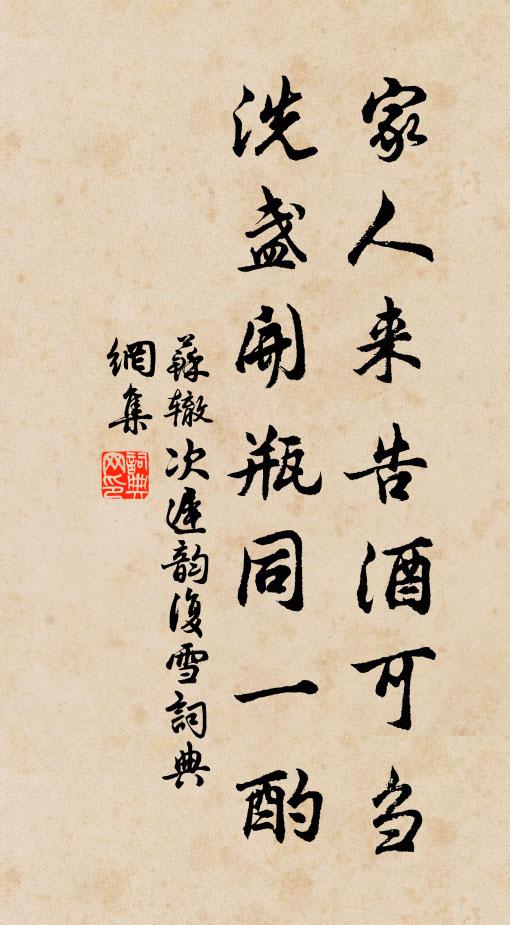 家人来告酒可
洗盏開瓶同一酌
蘇辙次遲韵復雪詞典
網集
詞典
网印